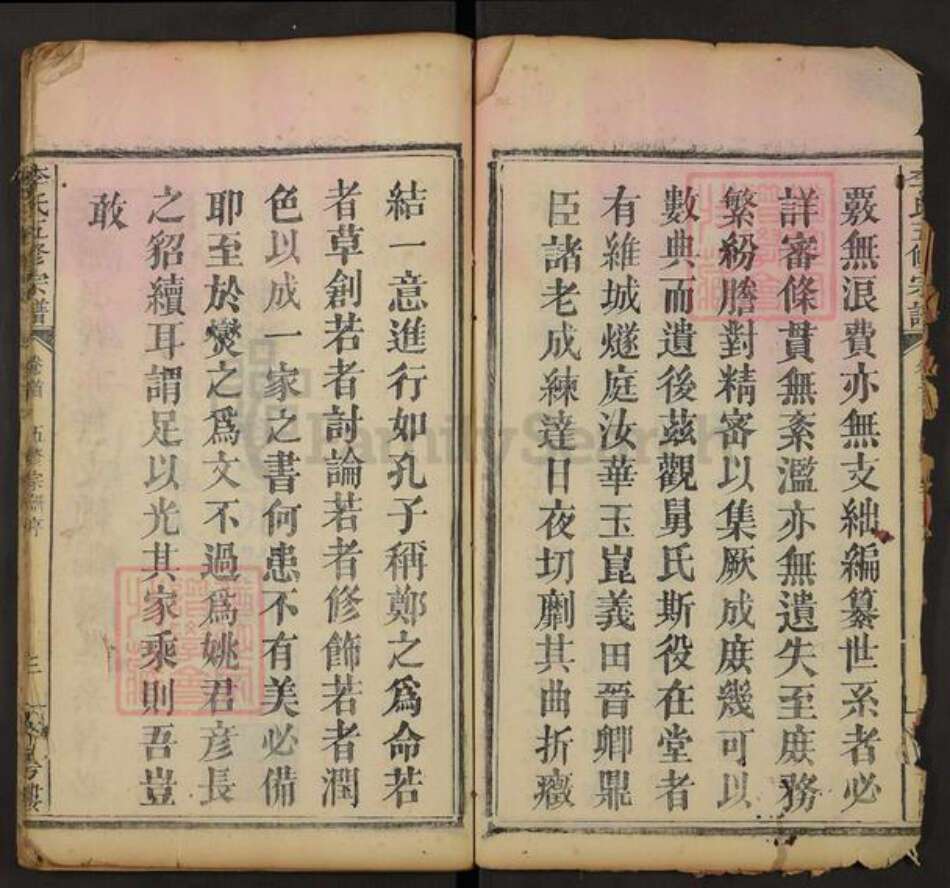 覈無浪費亦無支絀編纂世系者必
詳審條貫無紊濫亦無遺失至庶務
繁紛謄對精審以集厥成庶幾可以
數典而遺後茲觀舅氏斯役在堂者
有維城燧庭汝華玉崑義田晉卿鼎
臣諸老成練達日夜切劘其曲折癥
結一意進行如孔子稱鄭之爲命若
者草創若者討論若者修飾若者潤
色以成一家之書何患不有美必備
耶至於爕之爲文不過爲姚君彦長
之貂續耳謂足以光其家乘則吾豈
敢
李氏五修宗譜
卷首
五修宗譜序
三
李氏五修宗譜
FamilySearch